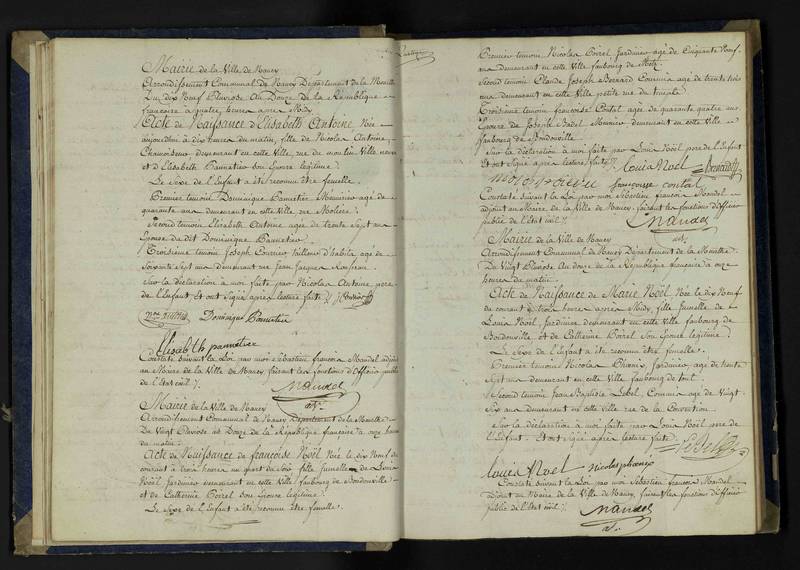 Mairie de la Ville de Nancy
Arrondissement Communal de Nancy Département de la Meurthe
Du dix Neuf Pluviose An Douze de la République
francaise a quatre heures apres Midy
Acte de Naissance d'Elisabeth Antoine Née
aujourdhui a dix heures du matin, fille de Nicolas Antoine,
demeurant en cette Ville, rue du moulin Ville neuve
et d'Elisabeth Pannetier son Epouse légitime
Le Sexe de l'Enfant a été reconnu être femelle.
Premier temoin Dominique Pannetier Menuisier agé de
quarante ans demeurant en cette Ville rue Moliere
Second temoin Elisabeth Antoine agée de trente Sept ans
Epouse du dit Dominique Pannetier
Troisieme temoin Joseph Courrier tailleur d'habits agé de
Soixante Sept ans demeurant rue Jean Jacques Rousseau
Sur la déclaration à moi faite par Nicolas Antoine pere
de l'Enfant Et ont Signé après lecture faite
Dominique Pannetier
Elisabeth pannetier
Constaté Suivant la Loi par moi Sébastien francois Mandel adjoint
au Maire de la Ville de Nancy, faisant les fonctions d'Officier public
de l'Etat civil
Mandel
adt.
Mairie de la Ville de Nancy
Arrondissement Communal de Nancy Département de la Meurthe
Du Vingt Pluviose an Douze de la République francaise à onze heures
du matin
Acte de Naissance de francoise Noël Née le dix Neuf du
courant à trois heures un quart du Soir fille Jumelle de Louis
Noël Jardinier demeurant en cette Ville faubourg de Boudonville
et de Catherine Poirel Son Epouse légitime
Le Sexe de l'Enfant a été reconnu être femelle.
Premier temoin Nicolas Poirel Jardinier agé de Cinquante Neuf
ans demeurant en cette Ville faubourg de Metz
Second temoin Claude Joseph Bernard Commis agé de trente trois
ans demeurant en cette Ville petite rue du
Troisieme temoin francoise Contal agée de quarante quatre ans
Epouse de Joseph Lebel Meunier demeurant en cette Ville
faubourg de Boudonville
Sur la déclaration à moi faite par Louis Noël pere de l'Enfant
Et ont Signé après lecture faite
louis Noel Bernard
françoise contal
Constaté Suivant la Loi par moi Sébastien francois Mandel
adjoint au Maire de la Ville de Nancy, faisant les fonctions d'Officier
public de l'Etat civil
Mandel
adt.
Mairie de la Ville de Nancy
Arrondissement Communal de Nancy Département de la Meurthe
Du Vingt Pluviose An douze de la République francaise à onze
heures du matin
Acte de Naissance de Marie Noël Née le dix Neuf
du courant à trois heures après Midy, fille Jumelle de
Louis Noël, Jardinier demeurant en cette Ville faubourg de
Boudonville et de Catherine Poirel Son Epouse légitime
Le Sexe de l'Enfant a été reconnu être femelle.
Premier temoin Nicolas Jardinier agé de trente
Sept ans demeurant en cette Ville faubourg de toul
Second temoin Jean Baptiste Lebel, Commis agé de Vingt
Six ans demeurant en cette Ville rue de la Convention
Sur la déclaration à moi faite par Louis Noël pere de
l'Enfant Et ont Signé après lecture faite
Lebel
louis Noel
Constaté Suivant la Loi par moi Sébastien francois Mandel
adjoint au Maire de la Ville de Nancy, faisant les fonctions d'Officier
public de l'Etat civil
Mandel
adt.